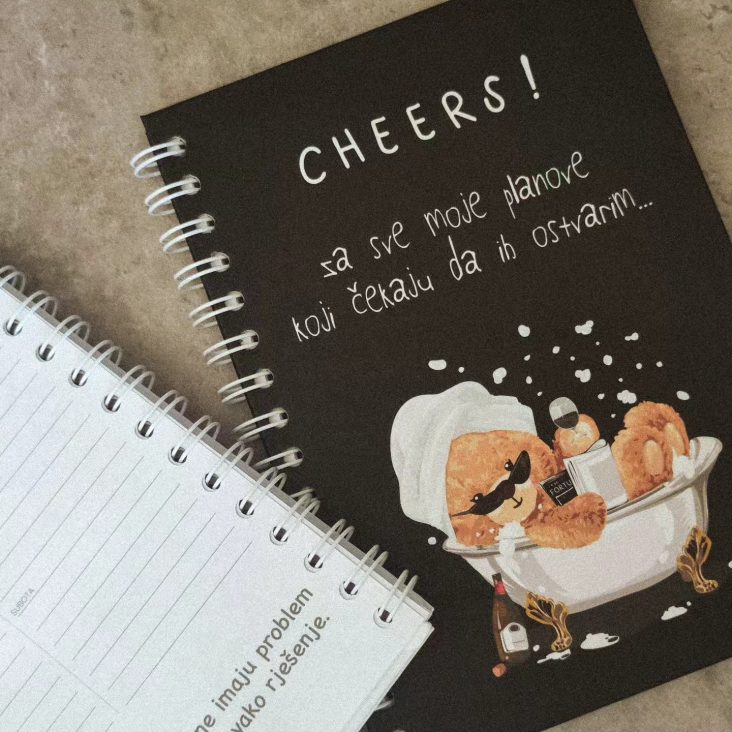 CHEERS!
za sve moje planove
koji čekaju da ih ostvarim...
FORTU
SUBOTA
ne imaju problem
vako rješenje.